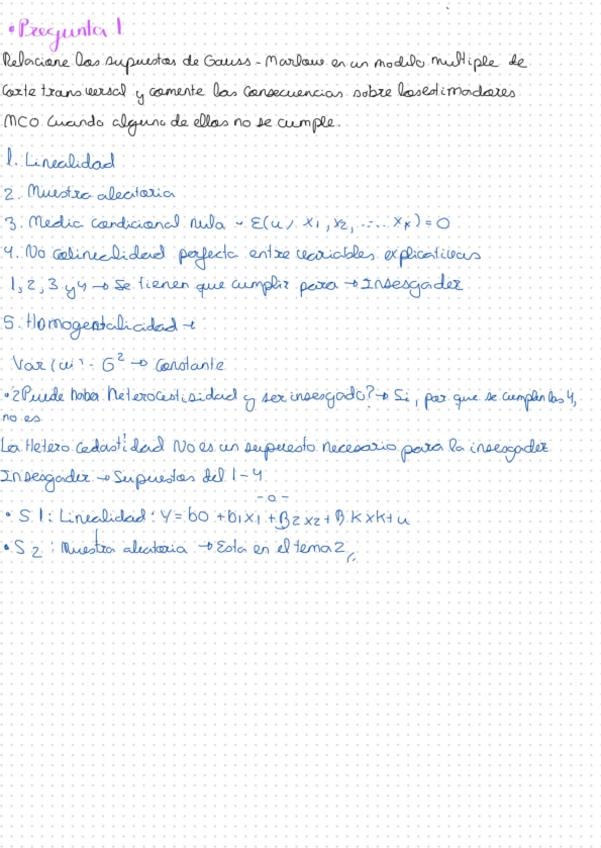 • Pregunta 1
Relacione los supuestos de Gauss-Markow en un modelo multiple de
corte transversal y comente las consecuencias sobre los estimadores
MCO cuando alguno de ellos no se cumple.
1. Linealidad
2. Muestra aleatoria
3. Media condicional nula ~ E(u/ x1, x2, ..... xk) = 0
4. No colinealidad perfecta entre variables explicativas
1, 2, 3 y 4 → Se tienen que cumplir para → Insesgadez
5.
Var(ui) = G² → Constante
• ¿Puede haber heterocestisidad y ser insesgado? → Si, por que se cumplen los 4,
no es
La Hetero cedastidad No es un supuesto necesario para la insesgadez
Insesgadez → Supuestos del 1-4
-o-
• S1: Linealidad: Y = b0 + b1x1 + B2x2 + B K xK + u
• S2: Muestra aleatoria → Esta en el tema 2